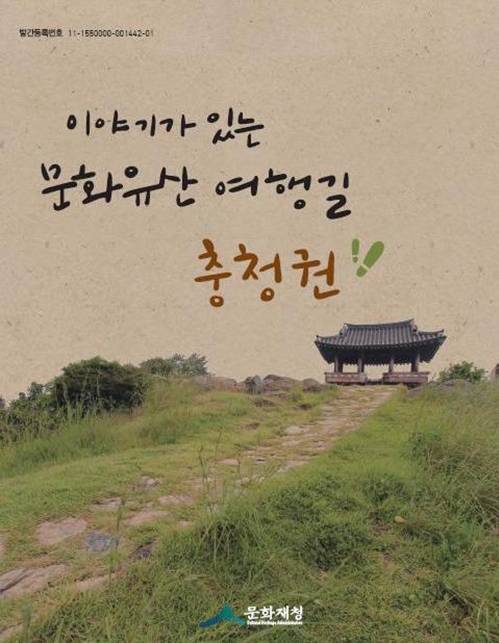 발간등록번호 11-1550000-001442-01
이야기가 있는
문화유산 여행길
충청권
문화재청
Cultural Heritage Administration